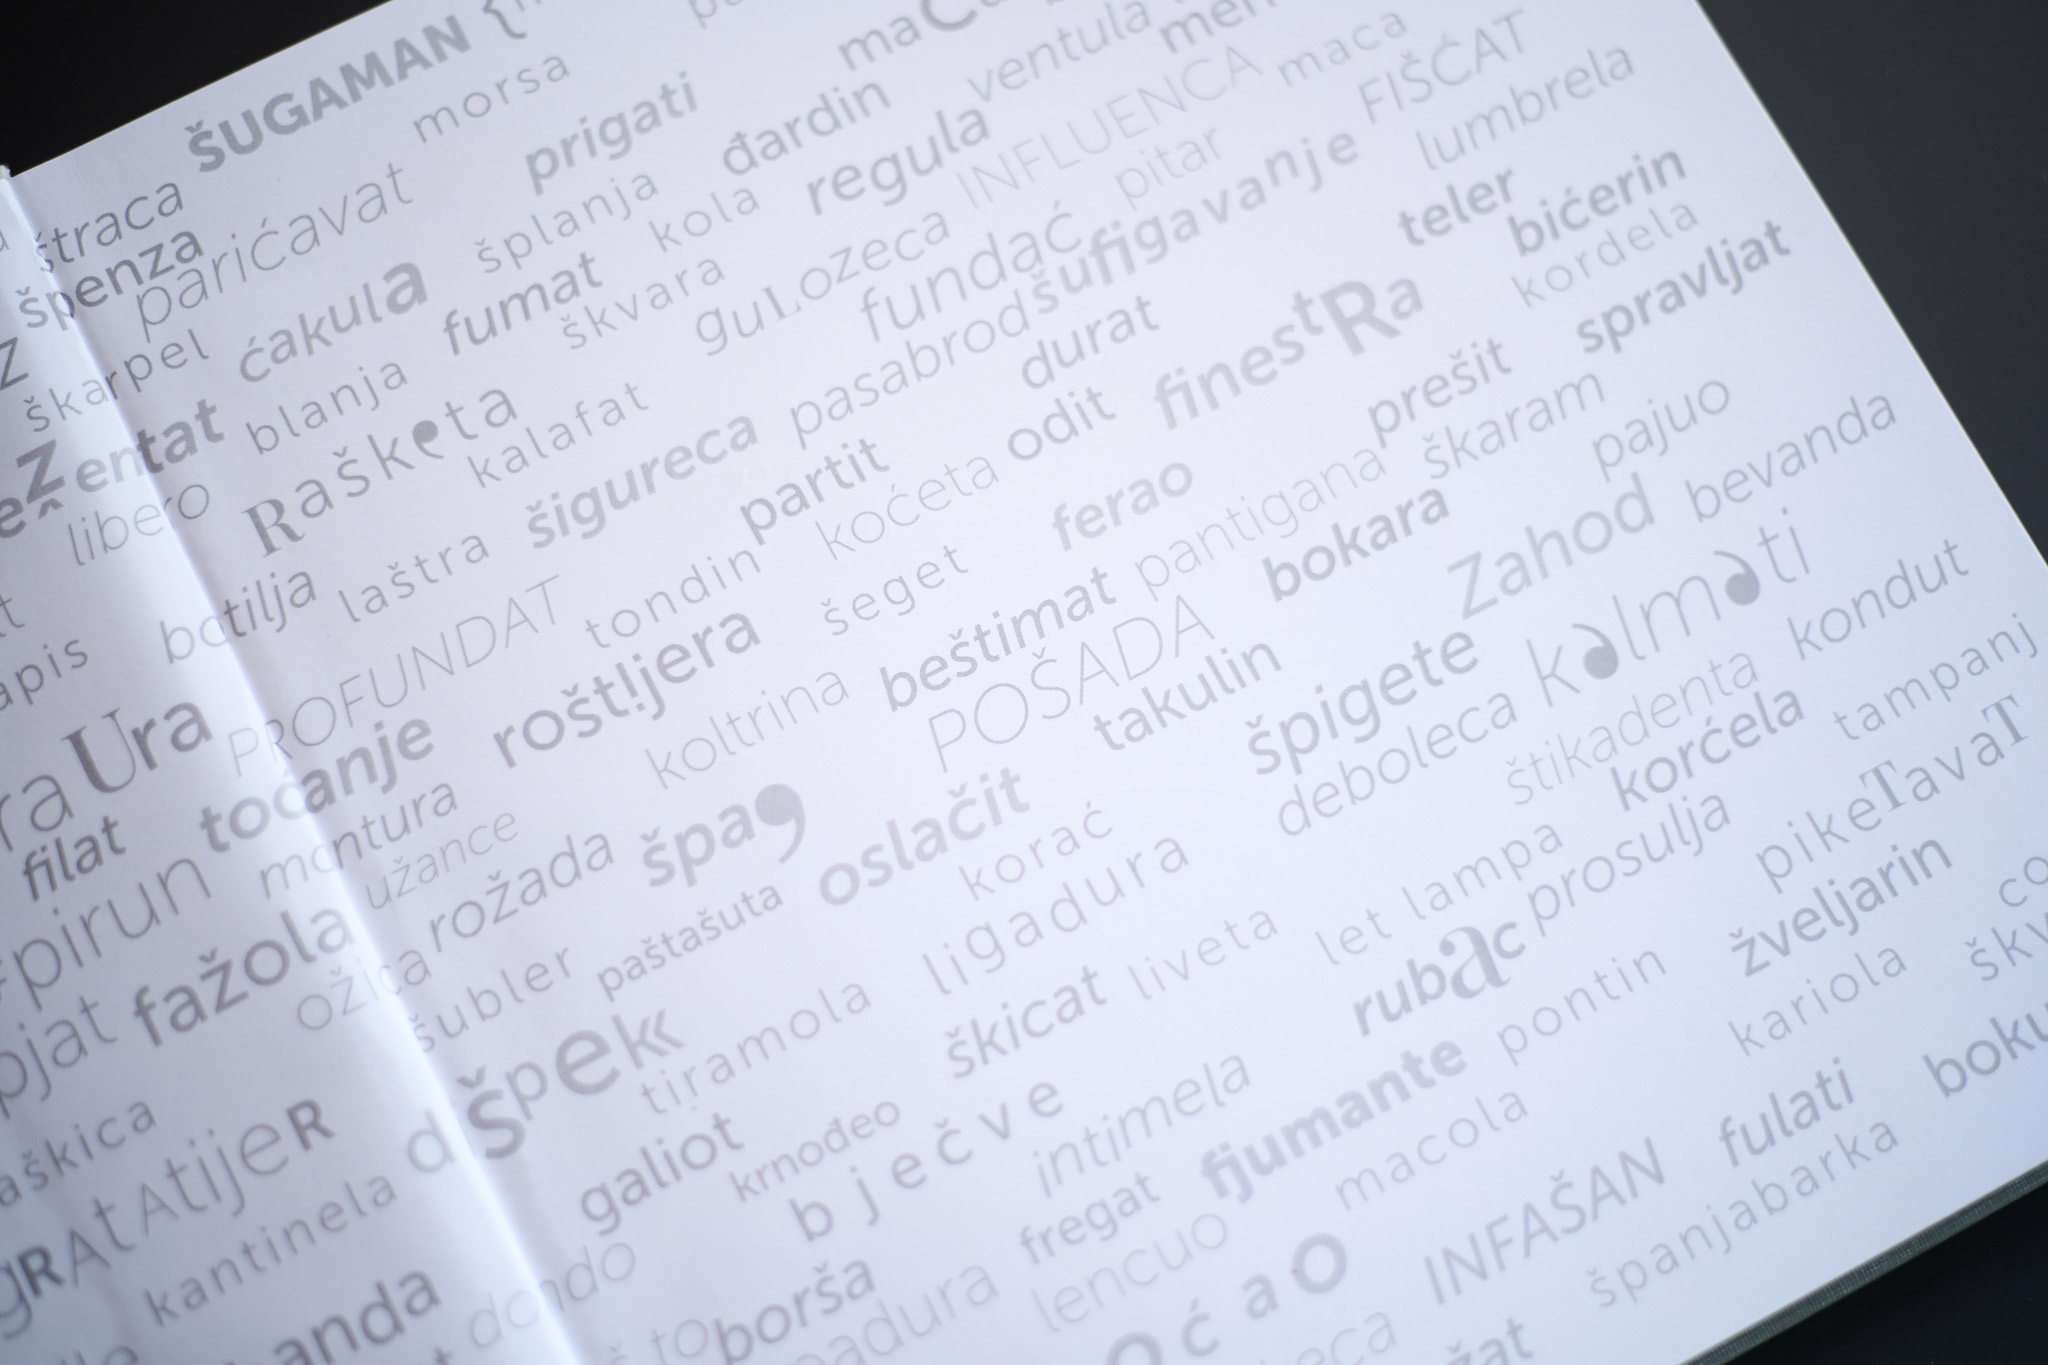 ŠUGAMAN
morsa
štraca
prigati
đardin
ventula
maca
FIŠĆAT
špenza
parićavat
šplanja
kola
regula
INFLUENCA
pitar
lumbrela
škarpel
ćakula
fumat
škvara
guLozeca
fundać
šufigavanje
teler
bićerin
blanja
kalafat
pasabrod
durat
finestRa
kordela
spravljat
libero
Rašketa
šigureca
partit
odit
prešit
škaram
pajuo
botilja
laštra
tondin
koćeta
ferao
pantigana
bokara
Zahod
bevanda
PROFUNDAT
šeget
beštimat
POŠADA
takulin
kalmati
kondut
filat
toćanje
rošt!jera
koltrina
špigete
deboleca
štikadenta
tampanj
montura
užance
rožada
špag
oslačit
korać
korćela
pikeTavaT
fažola
ožica
šubler
paštašuta
ligadura
let lampa
prosulja
žveljarin
špek
tiramola
škicat
liveta
rubac
pontin
kariola
gRAtAtijeR
galiot
krnođeo
bječve
intimela
fjumante
macola
fulati
kantinela
dondo
borša
fregat
lencuo
INFAŠAN
španjabarka